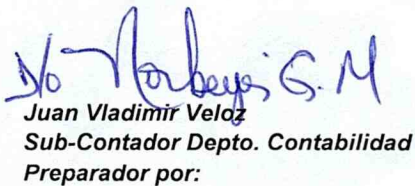 G. M
Juan Vladimir Veloz
Sub-Contador Depto. Contabilidad
Preparador por: